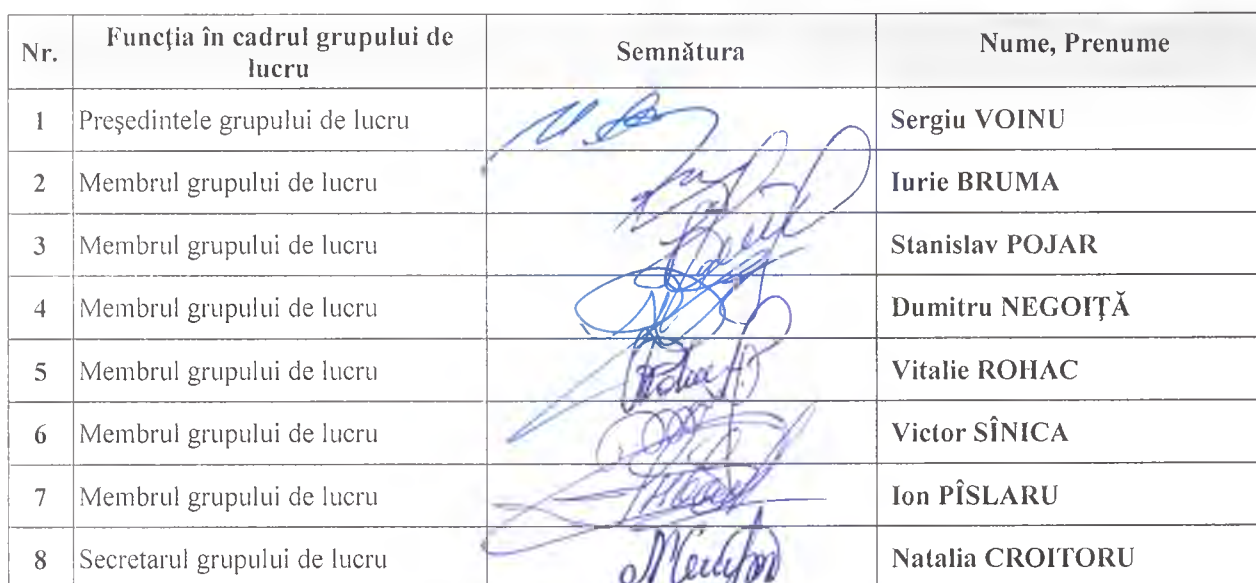 Nr. Funcţia în cadrul grupului de lucru Semnătura Nume, Prenume
1 Preşedintele grupului de lucru Sergiu VOINU
2 Membrul grupului de lucru Iurie BRUMA
3 Membrul grupului de lucru Stanislav POJAR
4 Membrul grupului de lucru Dumitru NEGOIŢĂ
5 Membrul grupului de lucru Vitalie ROHAC
6 Membrul grupului de lucru Victor SÎNICA
7 Membrul grupului de lucru Ion PÎSLARU
8 Secretarul grupului de lucru Natalia CROITORU